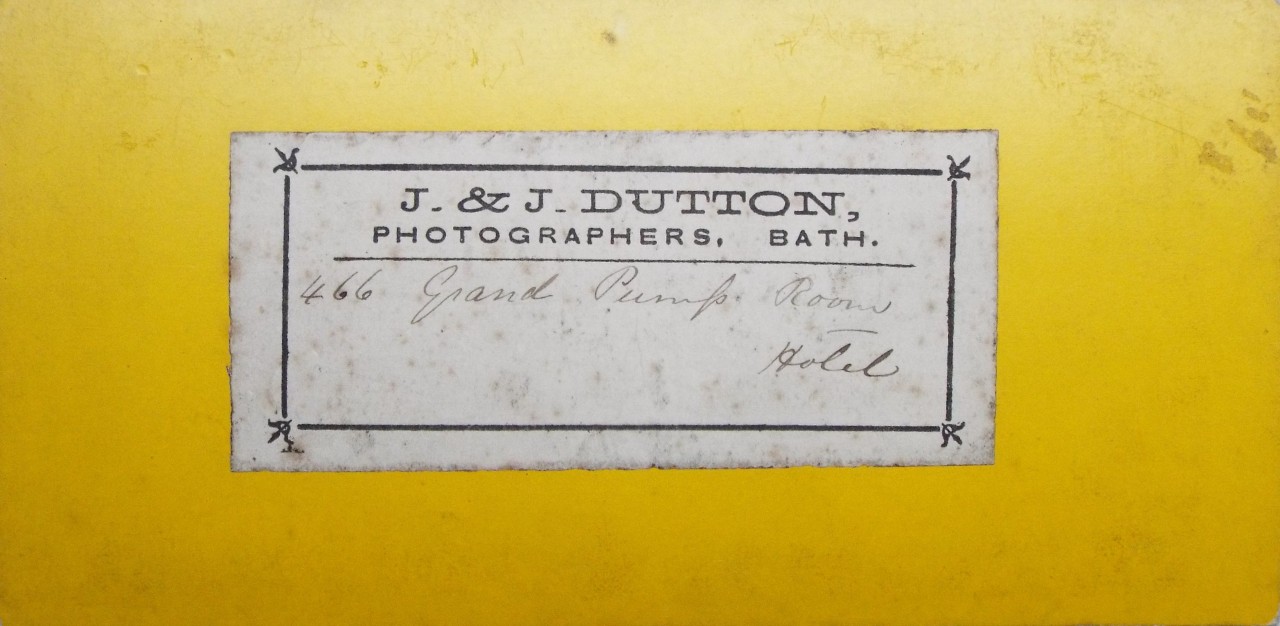 J. & J. DUTTON,
PHOTOGRAPHERS, BATH.
466 Grand Pump Room
Hotel